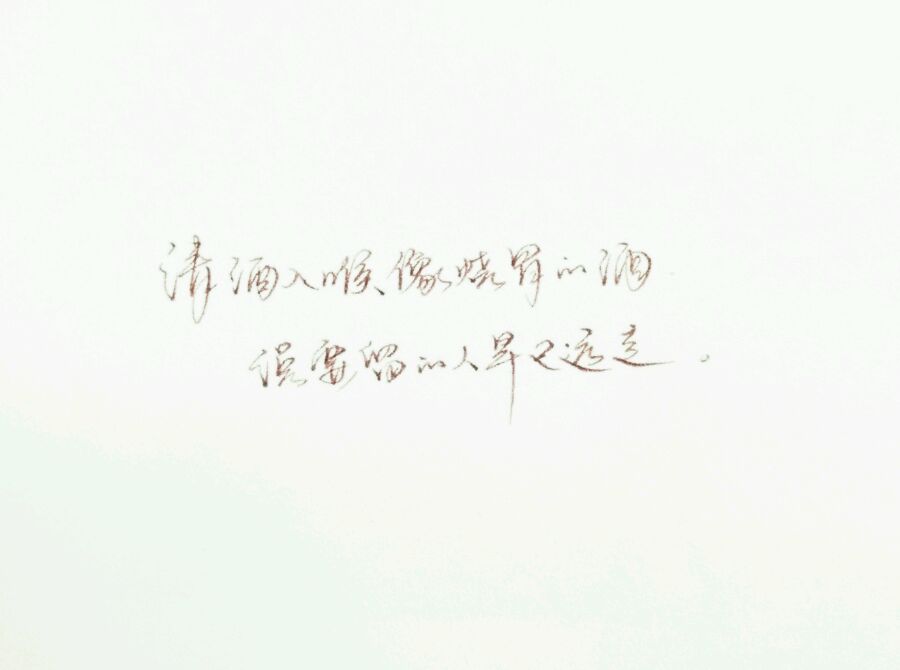 清酒入喉、像烧胃的酒
误要留的人早已远走。